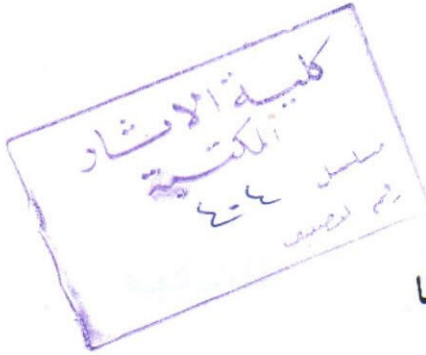 كليـة الاثـار
المكتبـة
مسلسل ٤٠٤
رقم التصنيف